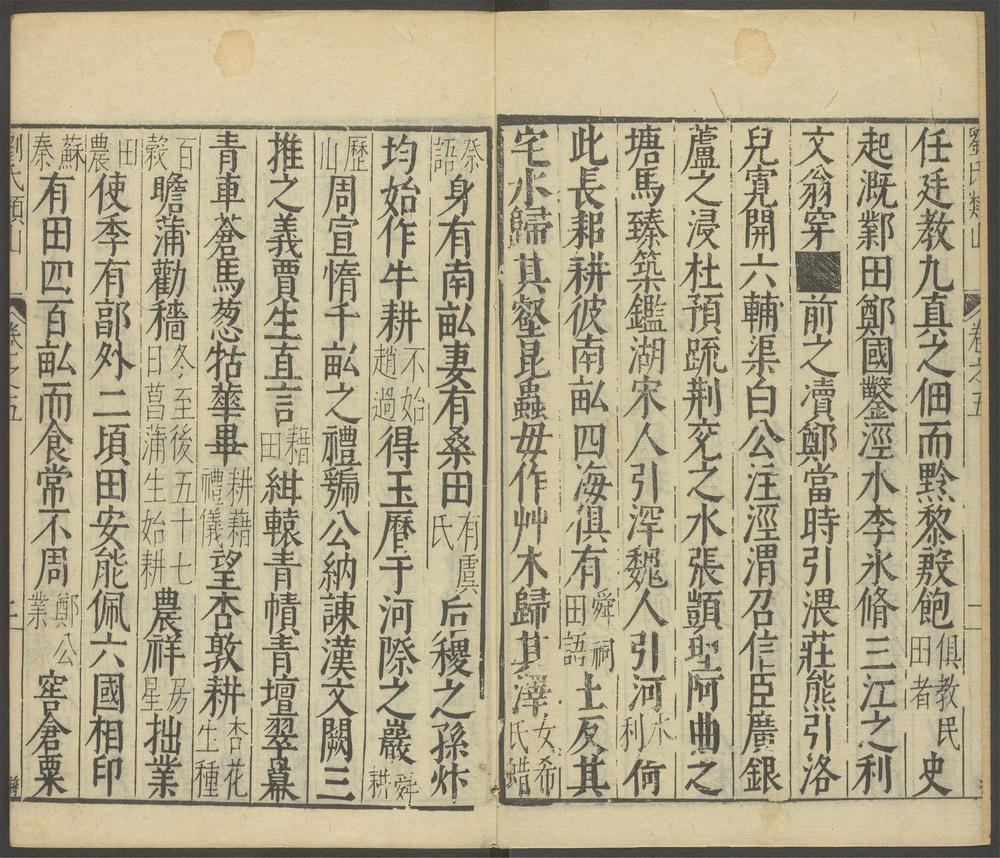 劉氏類山 卷之五 一
任延教九真之佃而黔黎殷飽俱教民田者史
起溉鄴田鄭國鑿涇水李氷脩三江之利
文翁穿前之瀆鄭當時引渨莊熊引洛
兒寬開六輔渠白公注涇渭召信臣廣銀
蘆之浸杜預䟽荆兖之水張顗塱阿曲之
塘馬臻築鑑湖宋人引浑魏人引河水利何
此長耜耕彼南畆四海俱有舜祠田語土反其
宅水歸其壑昆蟲毋作艸木歸其澤女希氏蜡
祭語身有南畆妻有桑田有虞氏后稷之孫炸
均始作牛耕不始趙過得玉曆于河際之巖舜耕
歷山周宣惰千畆之禮虢公納諫漢文闕三
推之義賈生直言藉田紺轅青幘青壇翠幕
青車蒼馬葱牯華畢耕藉禮儀望杏敦耕杏花生種
百穀瞻蒲勸穡冬至後五十七日菖蒲生始耕農祥房星拙業
田農使季有郭外二頃田安能佩六國相印
蘇秦有田四百畆而食常不周鄭公業窖倉粟
劉氏類山 卷之五 二